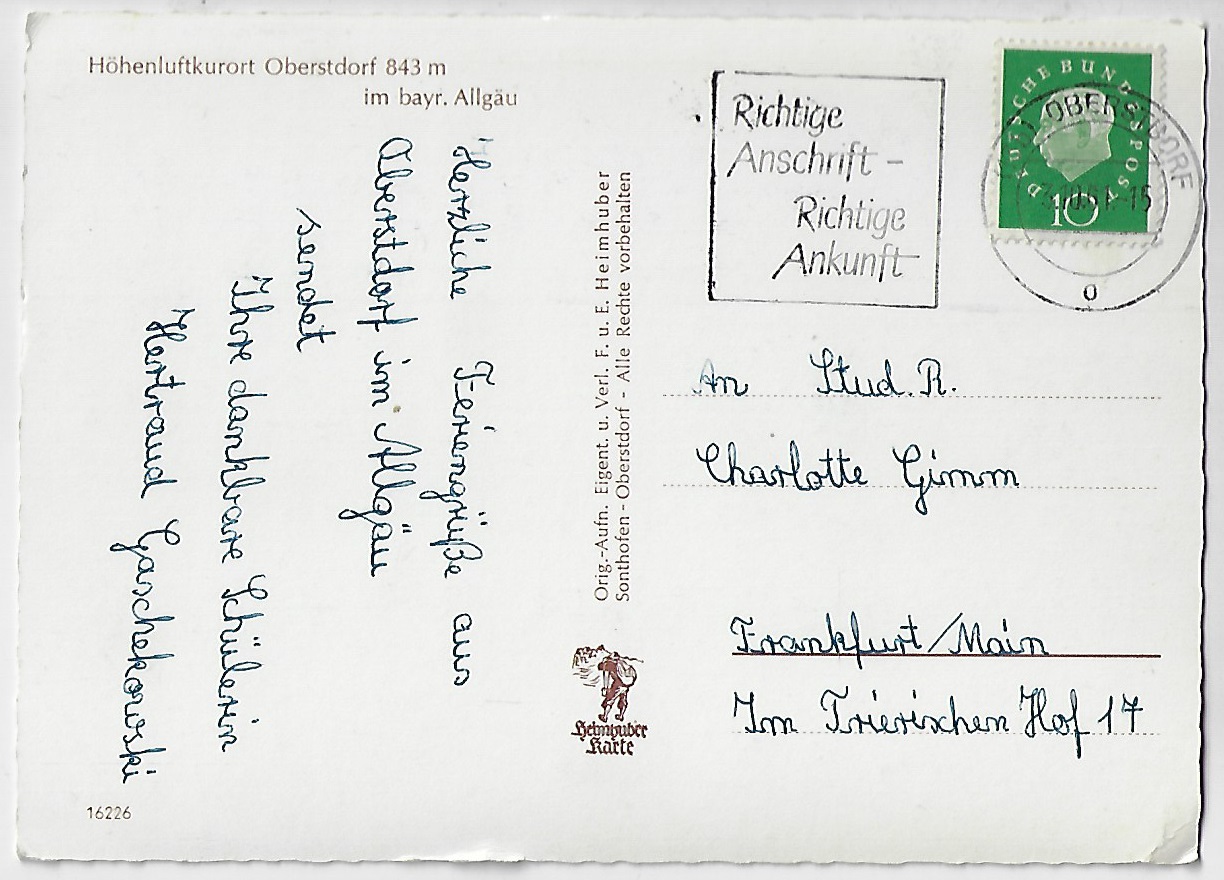 Höhenluftkurort Oberstdorf 843 m
im bayr. Allgäu
Herzliche Feriengrüße aus
Oberstdorf im Allgäu
sendet
Ihre dankbare Schülerin
Hertraud Gaschekowski
16226
Orig.-Aufn. Eigent. u. Verl. F. u. E. Heimhuber
Sonthofen - Oberstdorf - Alle Rechte vorbehalten
Heimhuber
Karte
Richtige
Anschrift –
Richtige
Ankunft
DEUTSCHE BUNDESPOST
10
OBERSTDORF
10.61.-15
o
An Stud. R.
Charlotte Gimm
Frankfurt/Main
Im Trierischen Hof 17